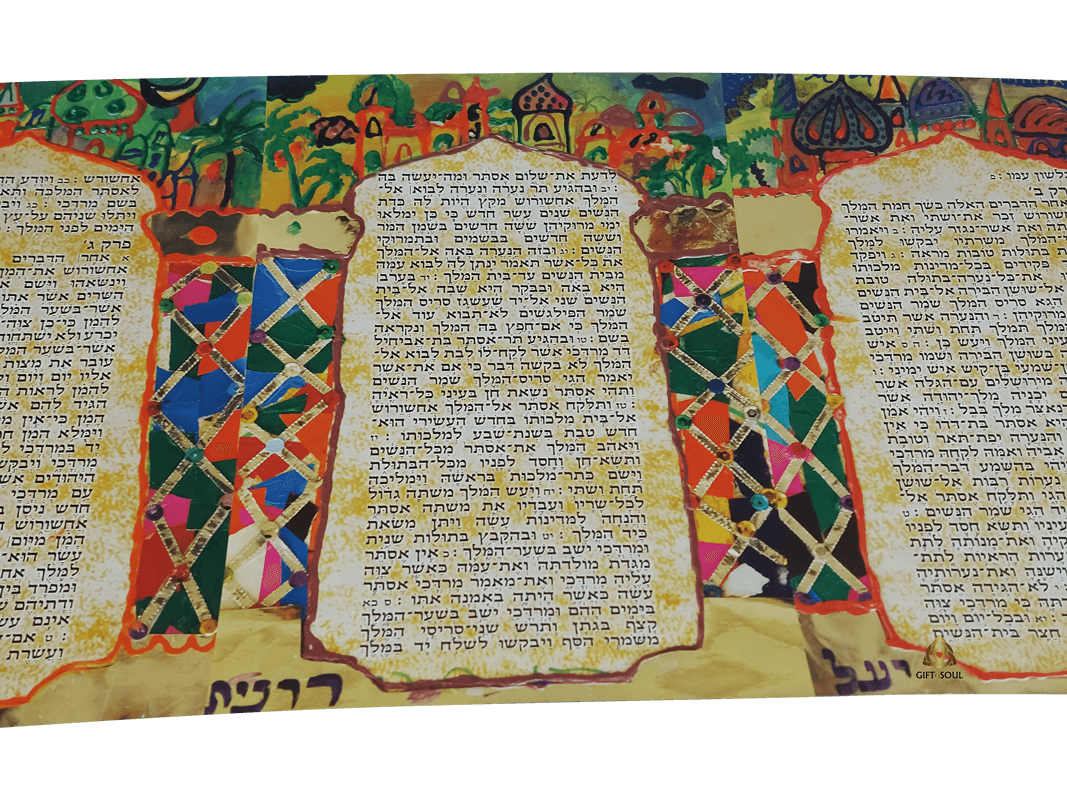 כלשון עמו : ס
רק ב׳
הדברים האלה כשך חמת המלך
שורוש זכר את־ושתי ואת אשר־
ואת אשר־נגזר עליה : ב ויאמרו
המלך משרתיו יבקשו למלך
בתולות טובות מראה : ג ויפקד
פקידים בכל־מדינות מלכותו
את־כל־נערה־בתולה טובת
אל־שושן הבירה אל־בית הנשים
הגא סריס המלך שמר הנשים
מרוקיהן : ד והנערה אשר תיטב
המלך תמלך תחת ושתי וייטב
המלך ויעש כן : ה ס איש
בשושן הבירה ושמו מרדכי
שמעי בן־קיש איש ימיני : ו
מירושלים עם־הגלה אשר
יכניה מלך־יהודה אשר
נאצר מלך בבל : ז ויהי אמן
אסתר בת־דדו כי אין
והנערה יפת־תאר וטובת
ואמה לקחה מרדכי
בהשמע דבר־המלך
נערות רבות אל־שושן
הגי ותלקח אסתר אל־
הגי שמר הנשים : ט
בעיניו ותשא חסד לפניו
ואת־מנותה לתת
הנערות הראיות לתת־
וישנה ואת־נערותיה
לא־הגידה אסתר
כי מרדכי צוה
יא ובכל־יום ויום
חצר בית־הנשים
לדעת את־שלום אסתר ומה־יעשה בה
: יב ובהגיע תר נערה ונערה לבוא אל־
המלך אחשורוש מקץ היות לה כדת
הנשים שנים עשר חדש כי כן ימלאו
ימי מרוקיהן ששה חדשים בשמן המר
וששה חדשים בבשמים ובתמרוקי
הנשים : יג ובזה הנערה באה אל־המלך
את כל־אשר תאמר ינתן לה לבוא עמה
מבית הנשים עד־בית המלך : יד בערב
היא באה ובבקר היא שבה אל־בית
הנשים שני אל־יד שעשגז סריס המלך
שמר הפילגשים לא־תבוא עוד אל־
המלך כי אם־חפץ בה המלך ונקראה
בשם : טו ובהגיע תר־אסתר בת־אביחיל
דד מרדכי אשר לקח־לו לבת לבוא אל־
המלך לא בקשה דבר כי אם את־אשר
יאמר הגי סריס־המלך שמר הנשים
ותהי אסתר נשאת חן בעיני כל־ראיה
: טז ותלקח אסתר אל־המלך אחשורוש
אל־בית מלכותו בחדש העשירי הוא־
חדש טבת בשנת־שבע למלכותו : יז
ויאהב המלך את־אסתר מכל־הנשים
ותשא־חן וחסד לפניו מכל־הבתולת
וישם כתר־מלכות בראשה וימליכה
תחת ושתי : יח ויעש המלך משתה גדול
לכל־שריו ועבדיו את משתה אסתר
והנחה למדינות עשה ויתן משאת
כיד המלך : יט ובהקבץ בתולות שנית
ומרדכי ישב בשער־המלך : כ אין אסתר
מגדת מולדתה ואת־עמה כאשר צוה
עליה מרדכי ואת־מאמר מרדכי אסתר
עשה כאשר היתה באמנה אתו : ס כא
בימים ההם ומרדכי ישב בשער־המלך
קצף בגתן ותרש שני־סריסי המלך
משמרי הסף ויבקשו לשלח יד במלך
אחשורש : כב ויודע
לאסתר המלכה ותאמר
בשם מרדכי :
ויתלו שניהם על־עץ
הימים לפני המלך :
פרק ג׳
א אחר הדברים
אחשורוש את־המן
וינשאהו וישם את
השרים אשר אתו
אשר־בשער המלך
להמן כי־כן צוה־
יכרע ולא ישתחוה
אשר־בשער המלך
עובר את מצות
אליו יום ויום
להמן לראות
הגיד להם אשר
המן כי־אין
וימלא המן
יד במרדכי
מרדכי ויבקש
היהודים אשר
עם מרדכי
חדש ניסן
אחשורוש
המן מיום
עשר הוא־
למלך
ומפרד בין
ודתיהם
אינם עשים
: ט אם־על
ועשרת
יעל
רונית
GIFT SOUL